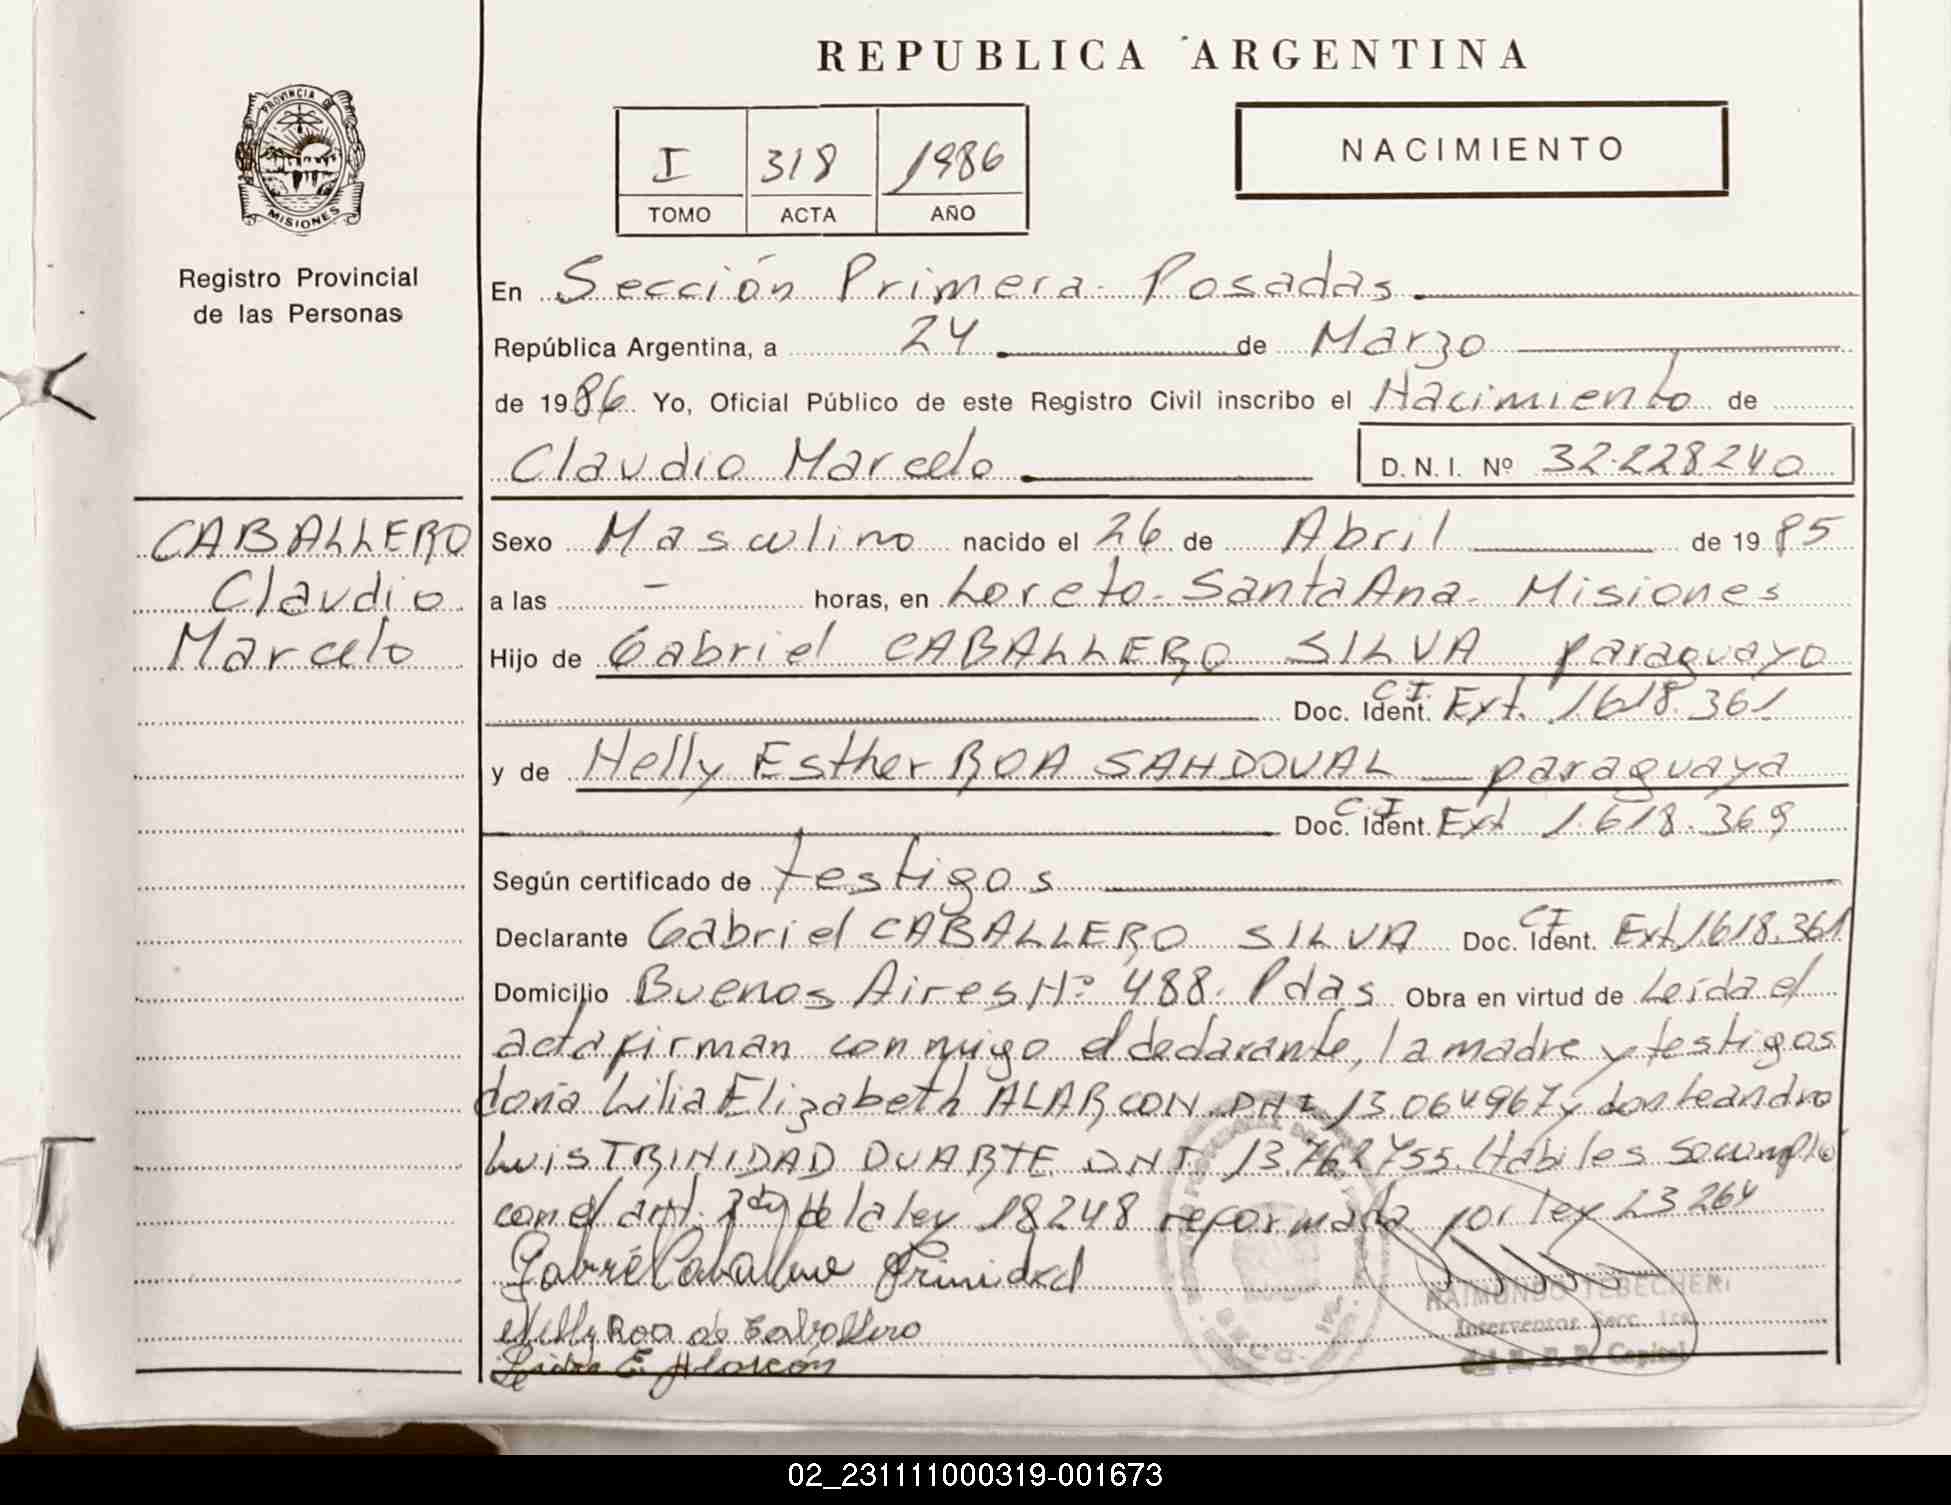 REPUBLICA ARGENTINA
PROVINCIA DE
MISIONES
Registro Provincial
de las Personas
I 318 1986
TOMO ACTA AÑO
NACIMIENTO
En Sección Primera Posadas
República Argentina, a 24 de Marzo
de 1986 Yo, Oficial Público de este Registro Civil inscribo el Nacimiento de
Claudio Marcelo D.N.I. Nº 32.228240
CABALLERO
Claudio
Marcelo
Sexo Masculino nacido el 26 de Abril de 1985
a las - horas, en Loreto-Santa Ana- Misiones
Hijo de Gabriel CABALLERO SILVA paraguayo
Doc. Ident. C.I. Ext. 1.618.361
y de Nelly Esther ROA SANDOVAL paraguaya
Doc. Ident. C.I. Ext 1.618.369
Según certificado de testigos
Declarante Gabriel CABALLERO SILVA Doc. Ident. CI Ext 1.618.361
Domicilio Buenos Aires Nº 488. Pdas Obra en virtud de Leída el
acta firman conmigo el declarante, la madre y testigos
doña Lilia Elizabeth ALARCON DNI 13.064967 y don Leandro
Luis TRINIDAD DUARTE DNI 13.762755. Hábiles Se cumplió
con el art. de la ley 18248 reformada por ley 23264
Gabriel Caballero Trinidad
Nelly Roa de Caballero
E. Alarcón
RAIMUNDO TEBECHERI
Interventor Secc. 1ra
del R. P. P. Capital
02_231111000319-001673